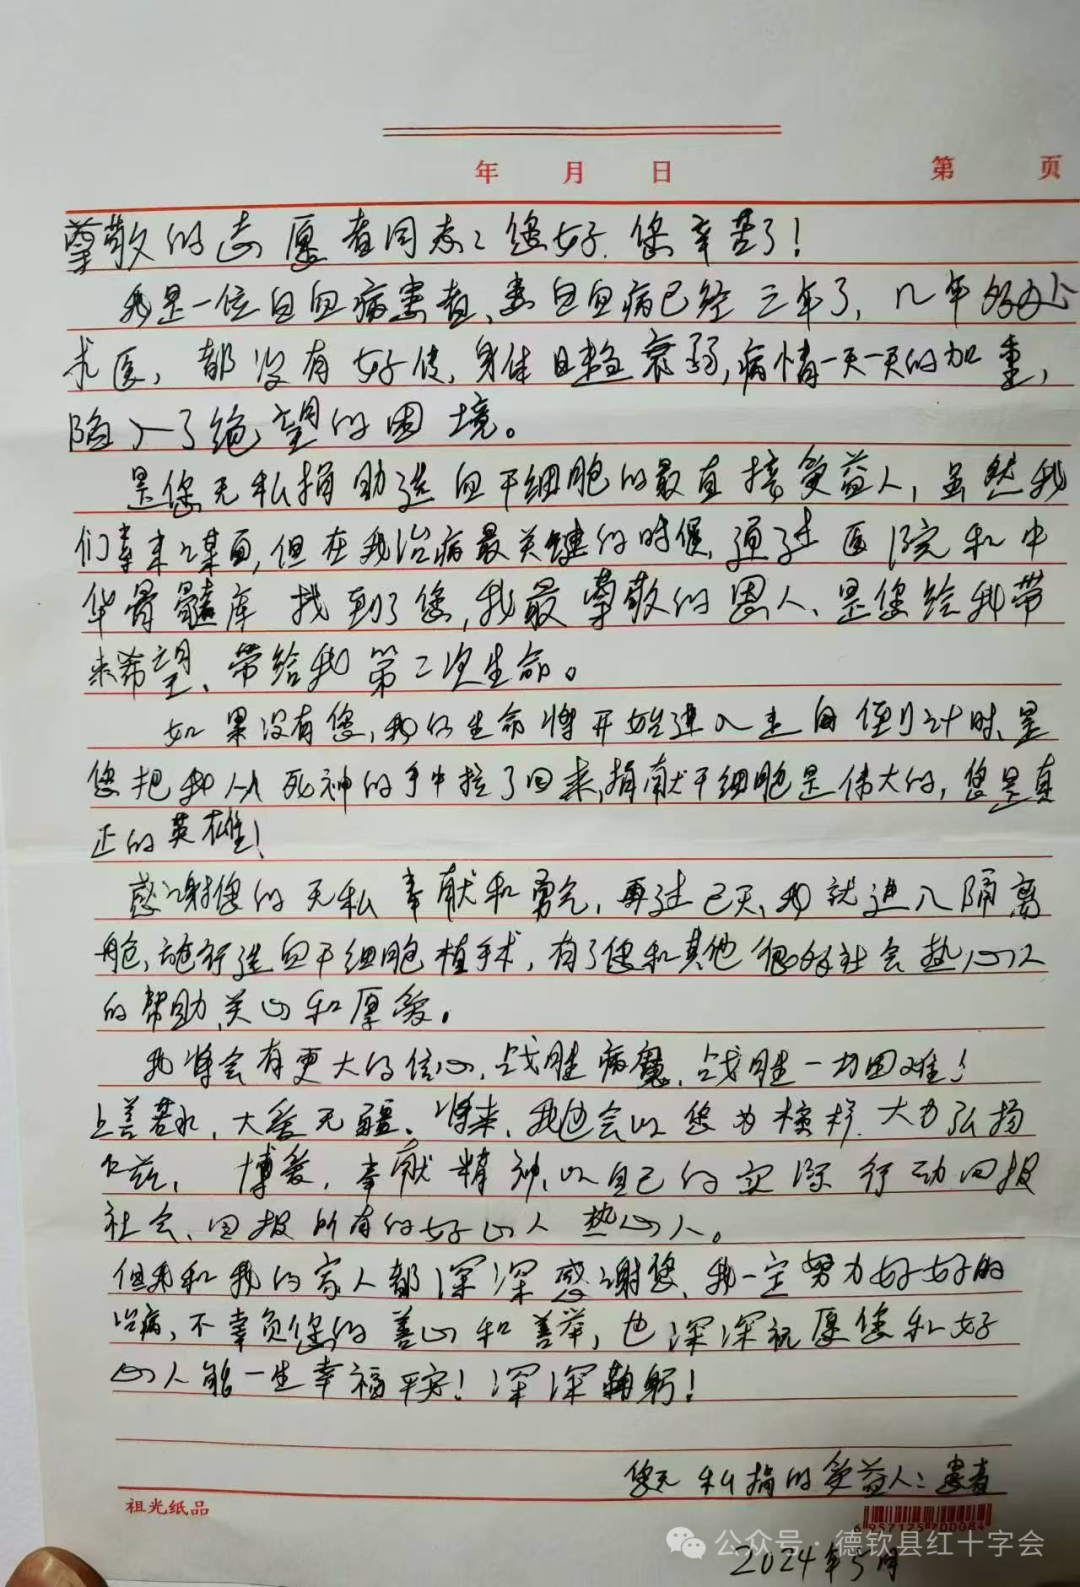 年 月 日 第 页
尊敬的志愿者同志:您好.您辛苦了!
我是一位白血病患者、患白血病已经三年了,几年的
求医,都没有好传,身体日趋衰弱,病情一天一天的加重,
陷入了绝望的困境。
是您无私捐助造血干细胞的最直接受益人,虽然我
们素未谋面,但在我治病最关键的时候,通过医院和中
华骨髓库找到了您,我最尊敬的恩人、是您给我带
来希望、带给我第二次生命。
如果没有您,我的生命将开始进入生命倒计时、是
您把我从死神的手中拉了回来,捐献干细胞是伟大的,您是真
正的英雄!
感谢您的无私奉献和勇气,再过已天,我就进入隔离
舱,施行造血干细胞植手术,有了您和其他很好社会热心人
的帮助、关心和厚爱。
我将会有更大的信心,战胜病魔,战胜一切困难!
上善若水,大爱无疆。将来,我也会以您为榜样.大力弘扬
仁慈,博爱,奉献精神,以自己的实际行动回报
社会、回报所有的好心人热心人。
但我和我的家人都深深感谢您、我一定努力好好的
治病,不辜负您的善心和善举,也深深祝愿您和好
心人能一生幸福平安!深深鞠躬!
您无私捐的受益人:患者
祖光纸品
6957125700084
公众号·德钦县红十字会
2024年5月